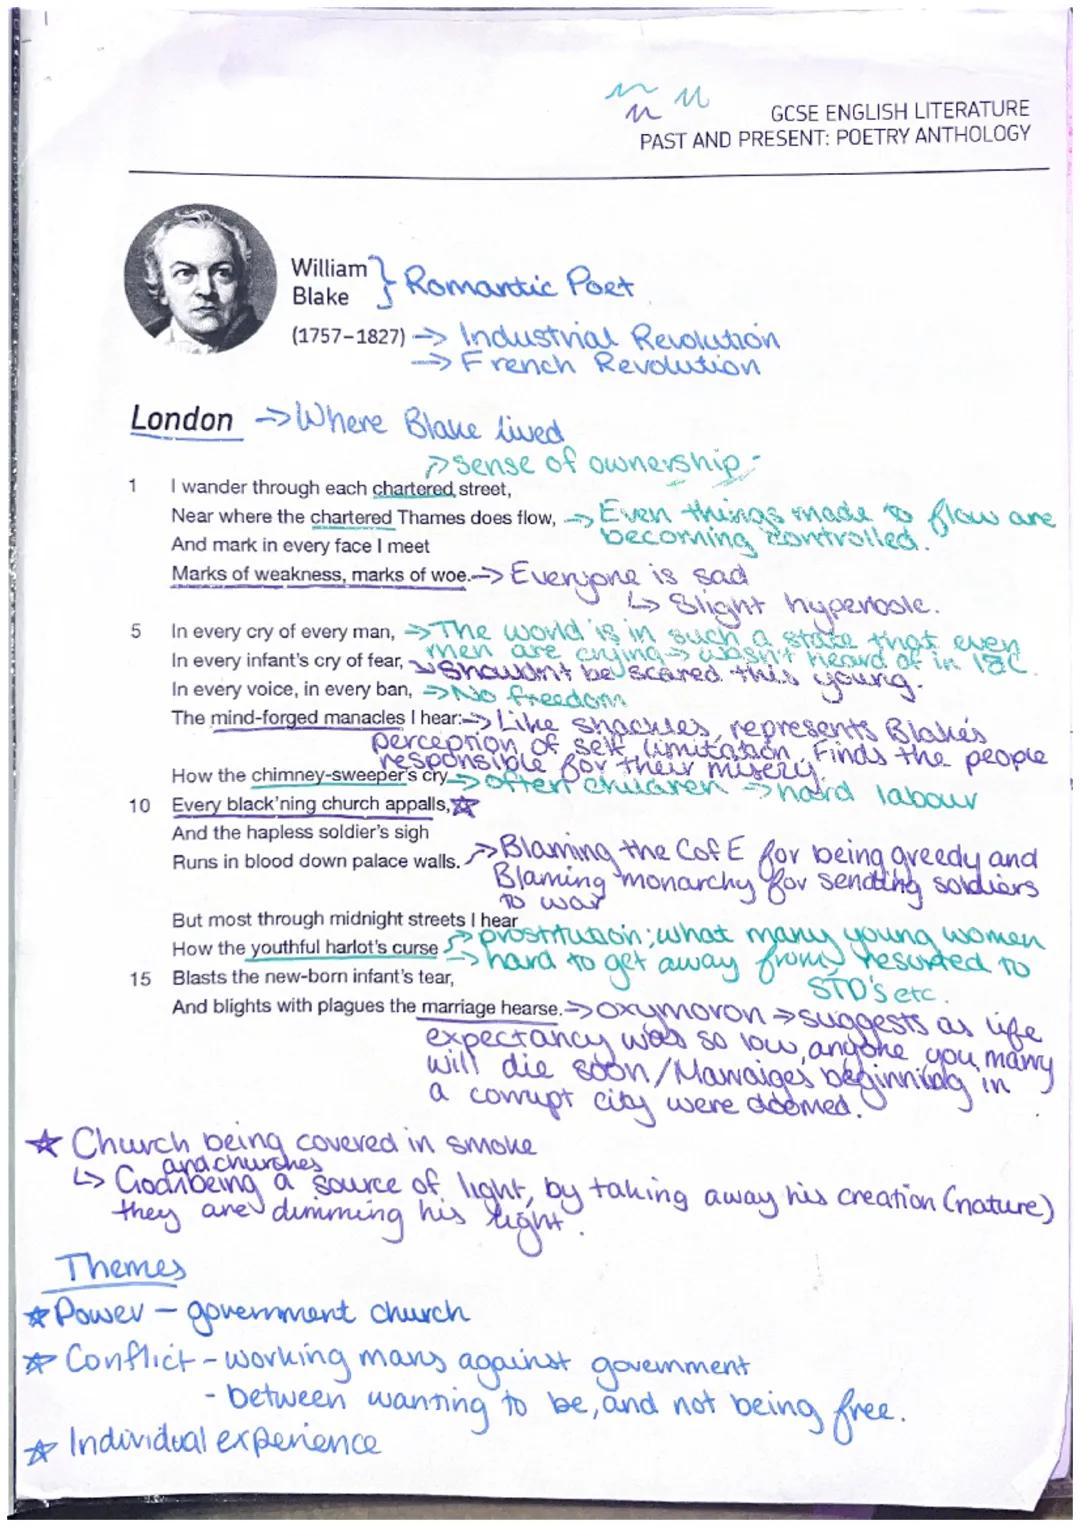 GCSE ENGLISH LITERATURE
PAST AND PRESENT: POETRY ANTHOLOGY
William
Blake } Romantic Poet
(1757–1827) → Industrial Revolution
→ French Revolution
London → Where Blake lived
→ sense of ownership
1 I wander through each chartered street,
Near where the chartered Thames does flow, → Even things made to flow are
becoming controlled.
And mark in every face I meet
Marks of weakness, marks of woe. → Everyone is sad
↳ Slight hyperbole.
5 In every cry of every man, → The world is in such a state that even
men are crying → wasn't heard of in 18C
In every infant's cry of fear, → Shouldn't be scared this young.
In every voice, in every ban, → No freedom
The mind-forged manacles I hear: → Like shackles, represents Blake's
perception of self limitation. Finds the people
responsible for their misery.
How the chimney-sweeper's cry → often children → hard labour
10 Every black'ning church appalls, ☆
And the hapless soldier's sigh
Runs in blood down palace walls. → Blaming the C of E for being greedy and
Blaming monarchy for sending soldiers
to war
But most through midnight streets I hear
How the youthful harlot's curse → prostitution; what many young women
→ hard to get away from, resorted to
STD's etc.
15 Blasts the new-born infant's tear,
And blights with plagues the marriage hearse. → oxymoron → suggests as life
expectancy was so low, anyone you marry
will die soon/Marraiges beginning in
a corrupt city were doomed.
☆ Church being covered in smoke
and churches
↳ God being a source of light, by taking away his creation (nature)
they are dimming his light.
Themes
☆ Power – government church
☆ Conflict - working mans against government
- between wanting to be, and not being free.
☆ Individual experience